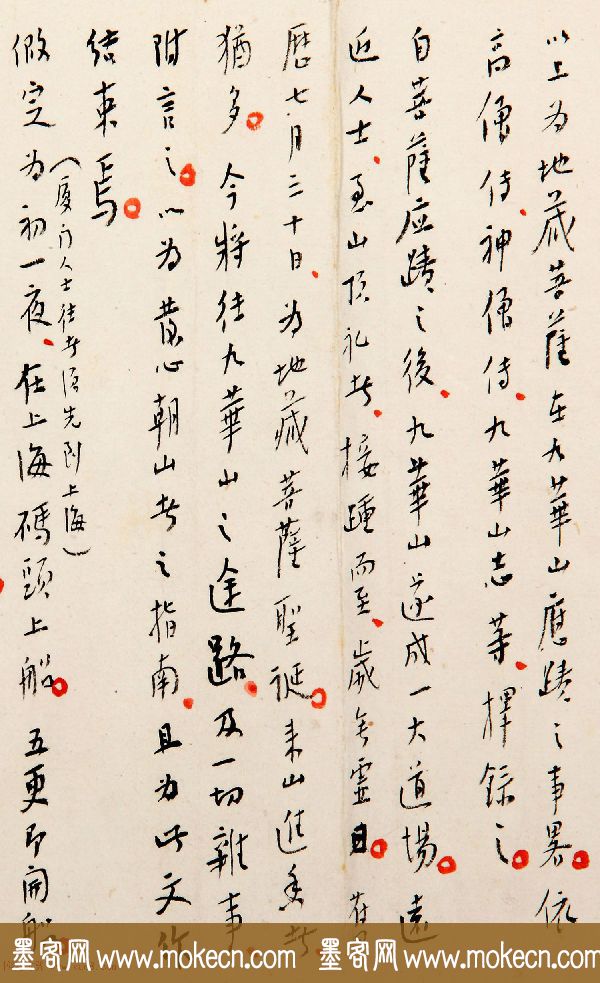 以上为地藏菩薩在九華山應蹟之事畧。依
高僧传、神僧传、九華山志等、擇錄之。
自菩薩应蹟之後、九華山遂成一大道場。遠
近人士、至山頂礼者、接踵而至、歲無虛日。舊
歷七月三十日、为地藏菩薩聖诞。来山進香者、
猶多。今將往九華山之途路、及一切雜事、
附言之、以为發心朝山者之指南、且为此文作
结束焉。
(廈门人士往者須先到上海)
假定为初一夜、在上海碼頭上船。五更即開船。
墨客网 www.mokecn.com 墨客网 www.mokecn.com